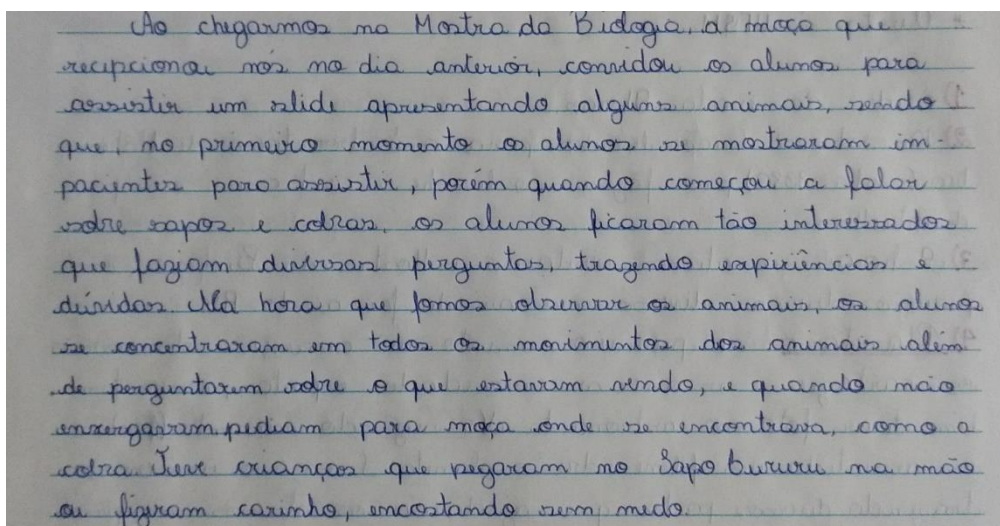 Ao chegarmos na Mostra da Biologia, a moça que
recipcionou nós no dia anterior, convidou os alunos para
assistir um slide apresentando alguns animais, sendo
que, no primeiro momento os alunos se mostraram im-
pacientes para assistir, porém quando começou a falar
sobre sapos e cobras, os alunos ficaram tão interessados
que faziam diversas perguntas, trazendo expiriências e
dúvidas. Na hora que fomos observar os animais, os alunos
se concentraram em todos os movimentos dos animais além
de perguntarem sobre o que estavam vendo, e quando não
enxergavam pediam para moça onde se encontrava, como a
cobra. Teve crianças que pegaram no Sapo bururu na mão
ou fizeram carinho, encostando sem medo.